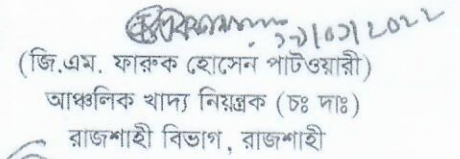 (জি.এম. ফারুক হোসেন পাটওয়ারী)
আঞ্চলিক খাদ্য নিয়ন্ত্রক (চঃ দাঃ)
রাজশাহী বিভাগ, রাজশাহী